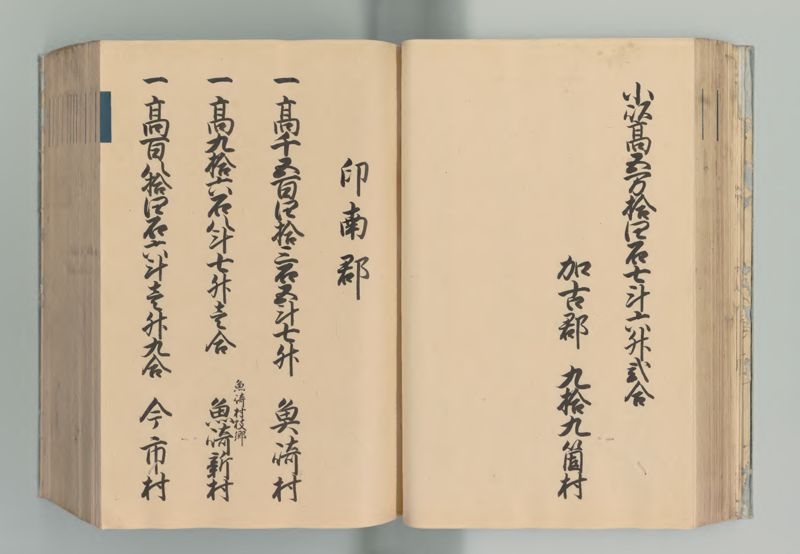 小以高五万拾四石七斗六升弐合
加古郡 九拾九箇村
印南郡
一高千五百四拾三石五斗七升 魚濤村
一高九拾六石八斗七升壱合 魚濤村枝郷 魚崎新村
一高百八拾四石六斗壱升九合 今市村